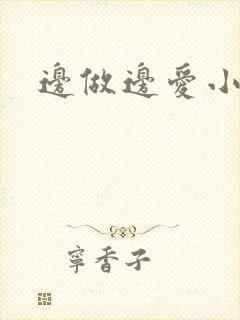 邊做邊愛小
寧香子